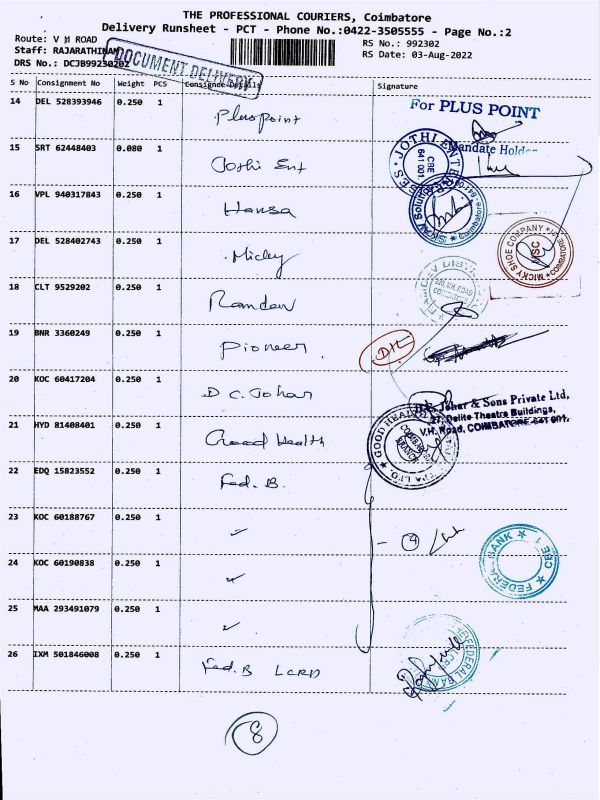 THE PROFESSIONAL COURIERS, Coimbatore
Delivery Runsheet - PCT - Phone No.:0422-3505555 - Page No.:2
Route: V H ROAD
RS No.: 992302
Staff: RAJARATHINAM
RS Date: 03-Aug-2022
DRS No.: DCJB99230202
DOCUMENT DELIVERY
S No Consignment No Weight PCS Consignee Details Signature
14 DEL 528393946 0.250 1 Plus point
For PLUS POINT
Mandate Holder
15 SRT 62448403 0.080 1 Jothi Ent
JOTHI ENTERPRISES
CBE
641 001
16 VPL 940317843 0.250 1 Hansa
Coimbatore
17 DEL 528402743 0.250 1 Micky
MICKY SHOE COMPANY
MSC
COIMBATORE
18 CLT 9529202 0.250 1 Ramdev
RAMDEV
19 BNR 3360249 0.250 1 Pioneer
20 KOC 60417204 0.250 1 D C. Johar
D.C. Johar & Sons Private Ltd,
27, Delite Theatre Buildings,
V.H. Road, COIMBATORE-641 001.
21 HYD 81408401 0.250 1 Good Health
GOOD HEALTH
22 EDQ 15823552 0.250 1 Fed. B.
23 KOC 60188767 0.250 1
4
FEDERAL BANK
CBE 1
24 KOC 60190838 0.250 1
25 MAA 293491079 0.250 1
26 IXM 501846008 0.250 1 Fed. B LCRD
FEDERAL BANK
8